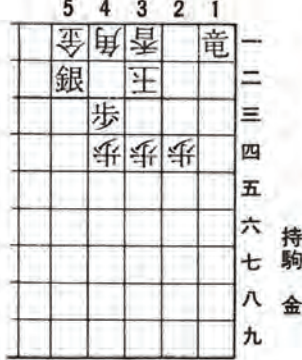 5 4 3 2 1
金 角 香 竜 一
銀 玉 二
歩 三
歩 歩 歩 四
五
六
七
八
九
持駒 金